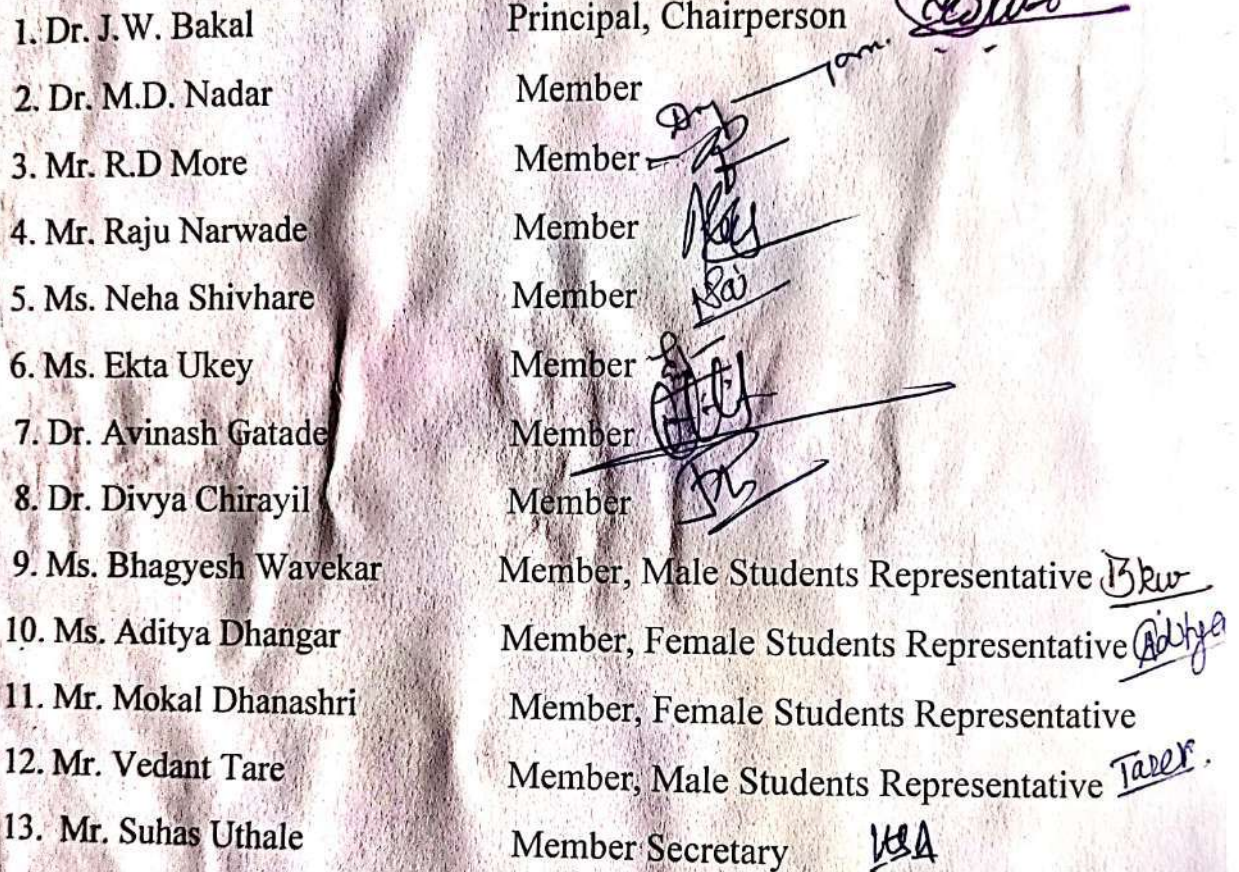 1. Dr. J.W. Bakal Principal, Chairperson
2. Dr. M.D. Nadar Member
3. Mr. R.D More Member
4. Mr. Raju Narwade Member
5. Ms. Neha Shivhare Member
6. Ms. Ekta Ukey Member
7. Dr. Avinash Gatade Member
8. Dr. Divya Chirayil Member
9. Ms. Bhagyesh Wavekar Member, Male Students Representative Bkw
10. Ms. Aditya Dhangar Member, Female Students Representative Aditya
11. Mr. Mokal Dhanashri Member, Female Students Representative
12. Mr. Vedant Tare Member, Male Students Representative
13. Mr. Suhas Uthale Member Secretary